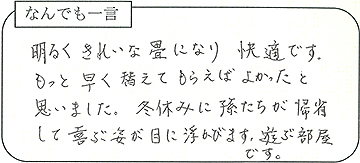 なんでも一言
明るく きれいな畳になり 快適です。
もっと早く替えてもらえばよかったと
思いました。冬休みに孫たちが帰省
して喜ぶ姿が目に浮かびます。遊ぶ部屋
です。